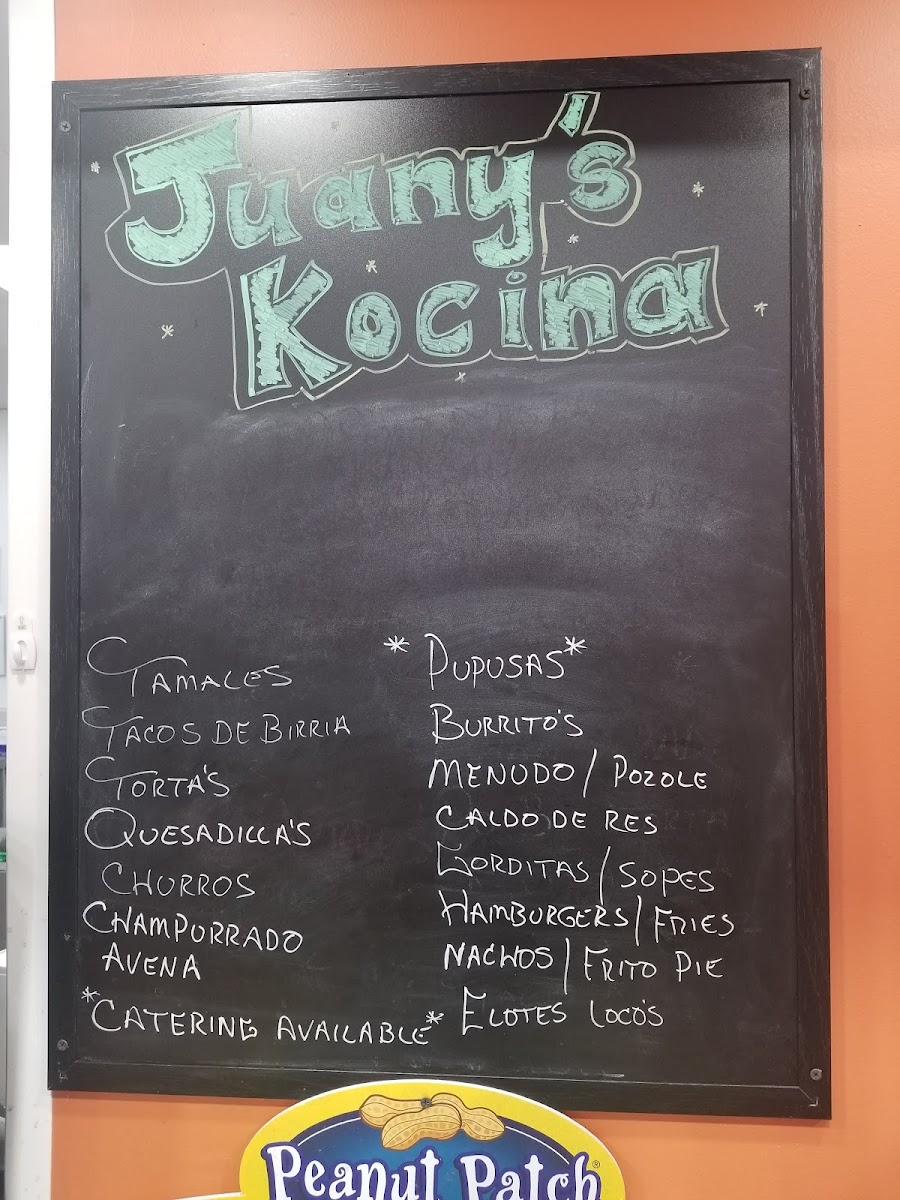 Juany's
Kocina
TAMALES
TACOS DE BIRRIA
TORTA'S
QUESADILLA'S
CHURROS
CHAMPURRADO
AVENA
*CATERING AVAILABLE*
* PUPUSAS*
BURRITO'S
MENUDO / POZOLE
CALDO DE RES
GORDITAS / SOPES
HAMBURGERS / FRIES
NACHOS / FRITO PIE
ELOTES LOCO'S
Peanut Patch®